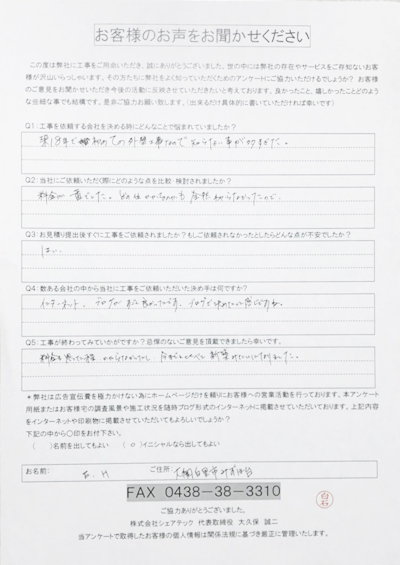 お客様のお声をお聞かせください
この度は弊社に工事をご用命いただき、誠にありがとうございました。世の中には弊社の存在やサービスをご存知ないお客
様が沢山いらっしゃいます。その方たちに弊社をよく知っていただくためのアンケートにご協力いただけるでしょうか？お客様
のご意見をお聞かせいただき今後の活動に反映させていただきたいと考えております。良かったこと、嬉しかったことどのよう
な些細な事でも結構です。是非ご協力お願い致します。（出来るだけ具体的に書いていただければ幸いです）
Q1：工事を依頼する会社を決める時にどんなことで悩まれていましたか？
築18年で初めての外壁工事なので知らない事が
Q2：当社にご依頼いただく際にどのような点を比較・検討されましたか？
料金が一番でした。
Q3：お見積り提出後すぐに工事をご依頼されましたか？もしご依頼されなかったとしたらどんな点が不安でしたか？
はい
Q4：数ある会社の中から当社に工事をご依頼いただいた決め手は何ですか？
インターネット、ブログが
Q5：工事が終わってみていかがですか？忌憚のないご意見を頂戴できましたら幸いです。
＊弊社は広告宣伝費を極力かけない為にホームページだけを頼りにお客様への営業活動を行っております。本アンケート
用紙またはお客様宅の調査風景や施工状況を随時ブログ形式のインターネットに掲載させていただいております。上記内容
をインターネットや印刷物に掲載させていただいてもよろしいでしょうか？
下記の中から〇印をお付下さい。
（　）名前を出してもよい　（ ○ ）イニシャルなら出してもよい
お名前：　ご住所：
FAX 0438-38-3310
ご協力ありがとうございました。
株式会社シェアテック　代表取締役　大久保 誠二
当アンケートで取得したお客様の個人情報は関係法規に基づき厳正に管理いたします。